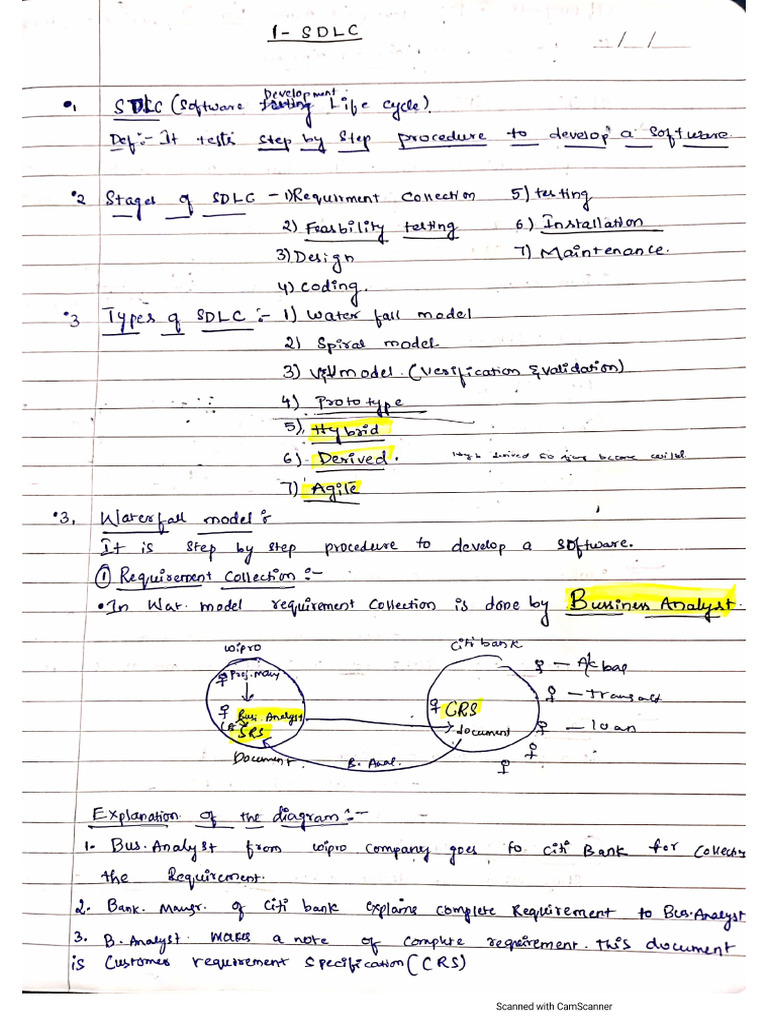 1- SDLC
_/_/_
•1 SDLC (Software Development Life Cycle).
Def:- It tests step by step procedure to develop a software.
•2 Stages of SDLC - 1) Requirment Collection 5) testing
2) Feasbility testing 6) Installation
3) Design 7) Maintenance.
4) coding.
•3 Types of SDLC :- 1) Water fall model
2) Spiral model
3) V&V model. (Verification & validation)
4) Prototype
5) Hybrid
6) Derived. derived so become
7) Agile
•3. Waterfall model :-
It is step by step procedure to develop a software.
① Requirement Collection :-
• In Wat. model requirement Collection is done by Bussiness Analyst.
Wipro Citi bank
Proj. man A/c bal
Bus. Analyst CRS - transact
SRS document - loan
Document B. Anal.
Explanation of the diagram :-
1- Bus. Analyst from wipro company goes to citi Bank for Collectin
the Requirement.
2. Bank. Mangr. of Citi bank explains complete Requirement to Bus. Analyst
3. B. Analyst. makes a note of complete requirement. this document
is Customer requirement Specification (CRS)
Scanned with CamScanner